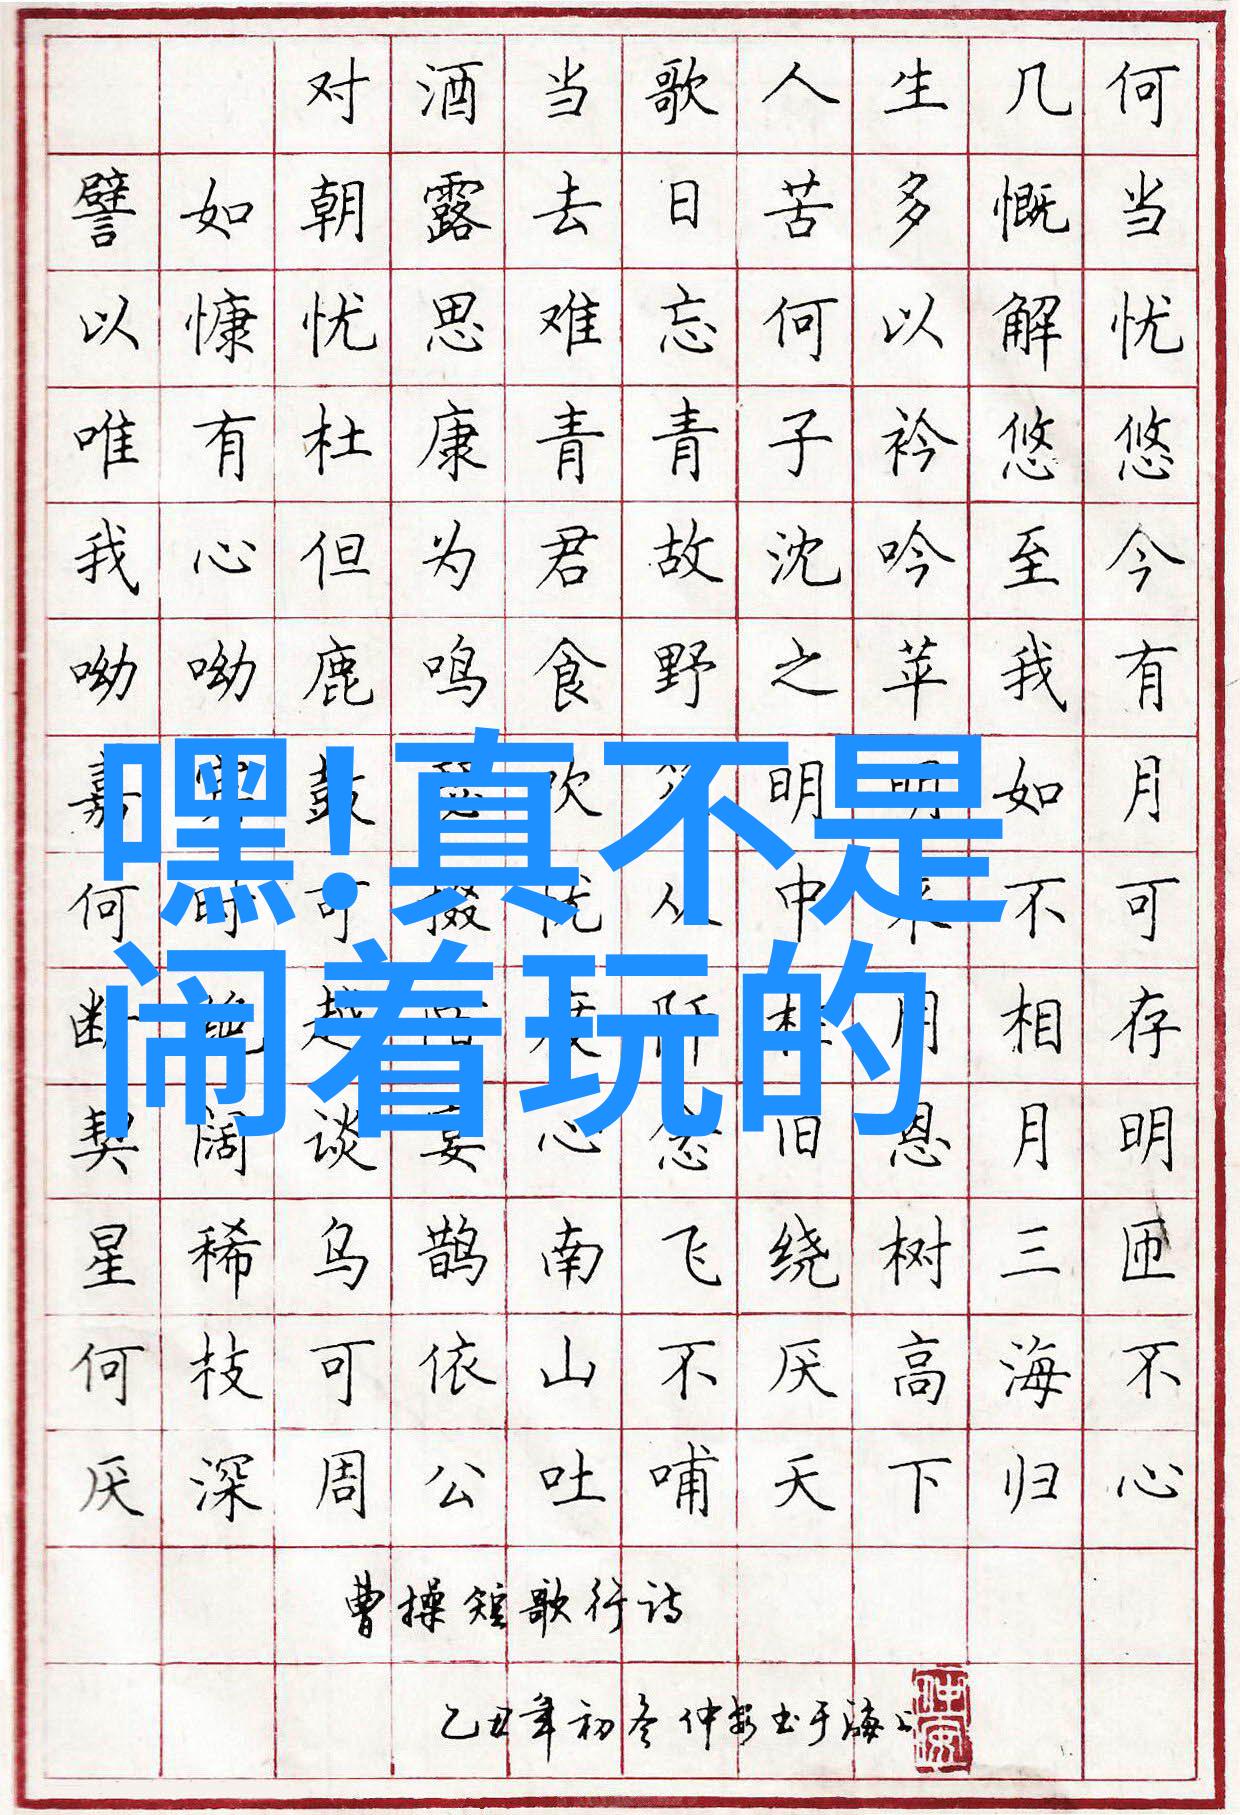 对酒当歌人生几何
譬如朝露去日苦多慨当
以慷忧思难忘何以解忧
唯有杜康青青子衿悠悠
我心但为君故沈吟至今
呦呦鹿鸣食野之苹我有
嘉鼓瑟吹明明如月
何时可掇忧从中来不可
断绝越陌度阡枉用相存
契阔谈宴心念旧恩月明
星稀乌鹊南飞绕树三匝
何枝可依山不厌高海不
厌深周公吐哺天下归心
曹操短歌行诗
乙丑年初冬仲安书于海上
仲安
嘿!真不是
闹着玩的